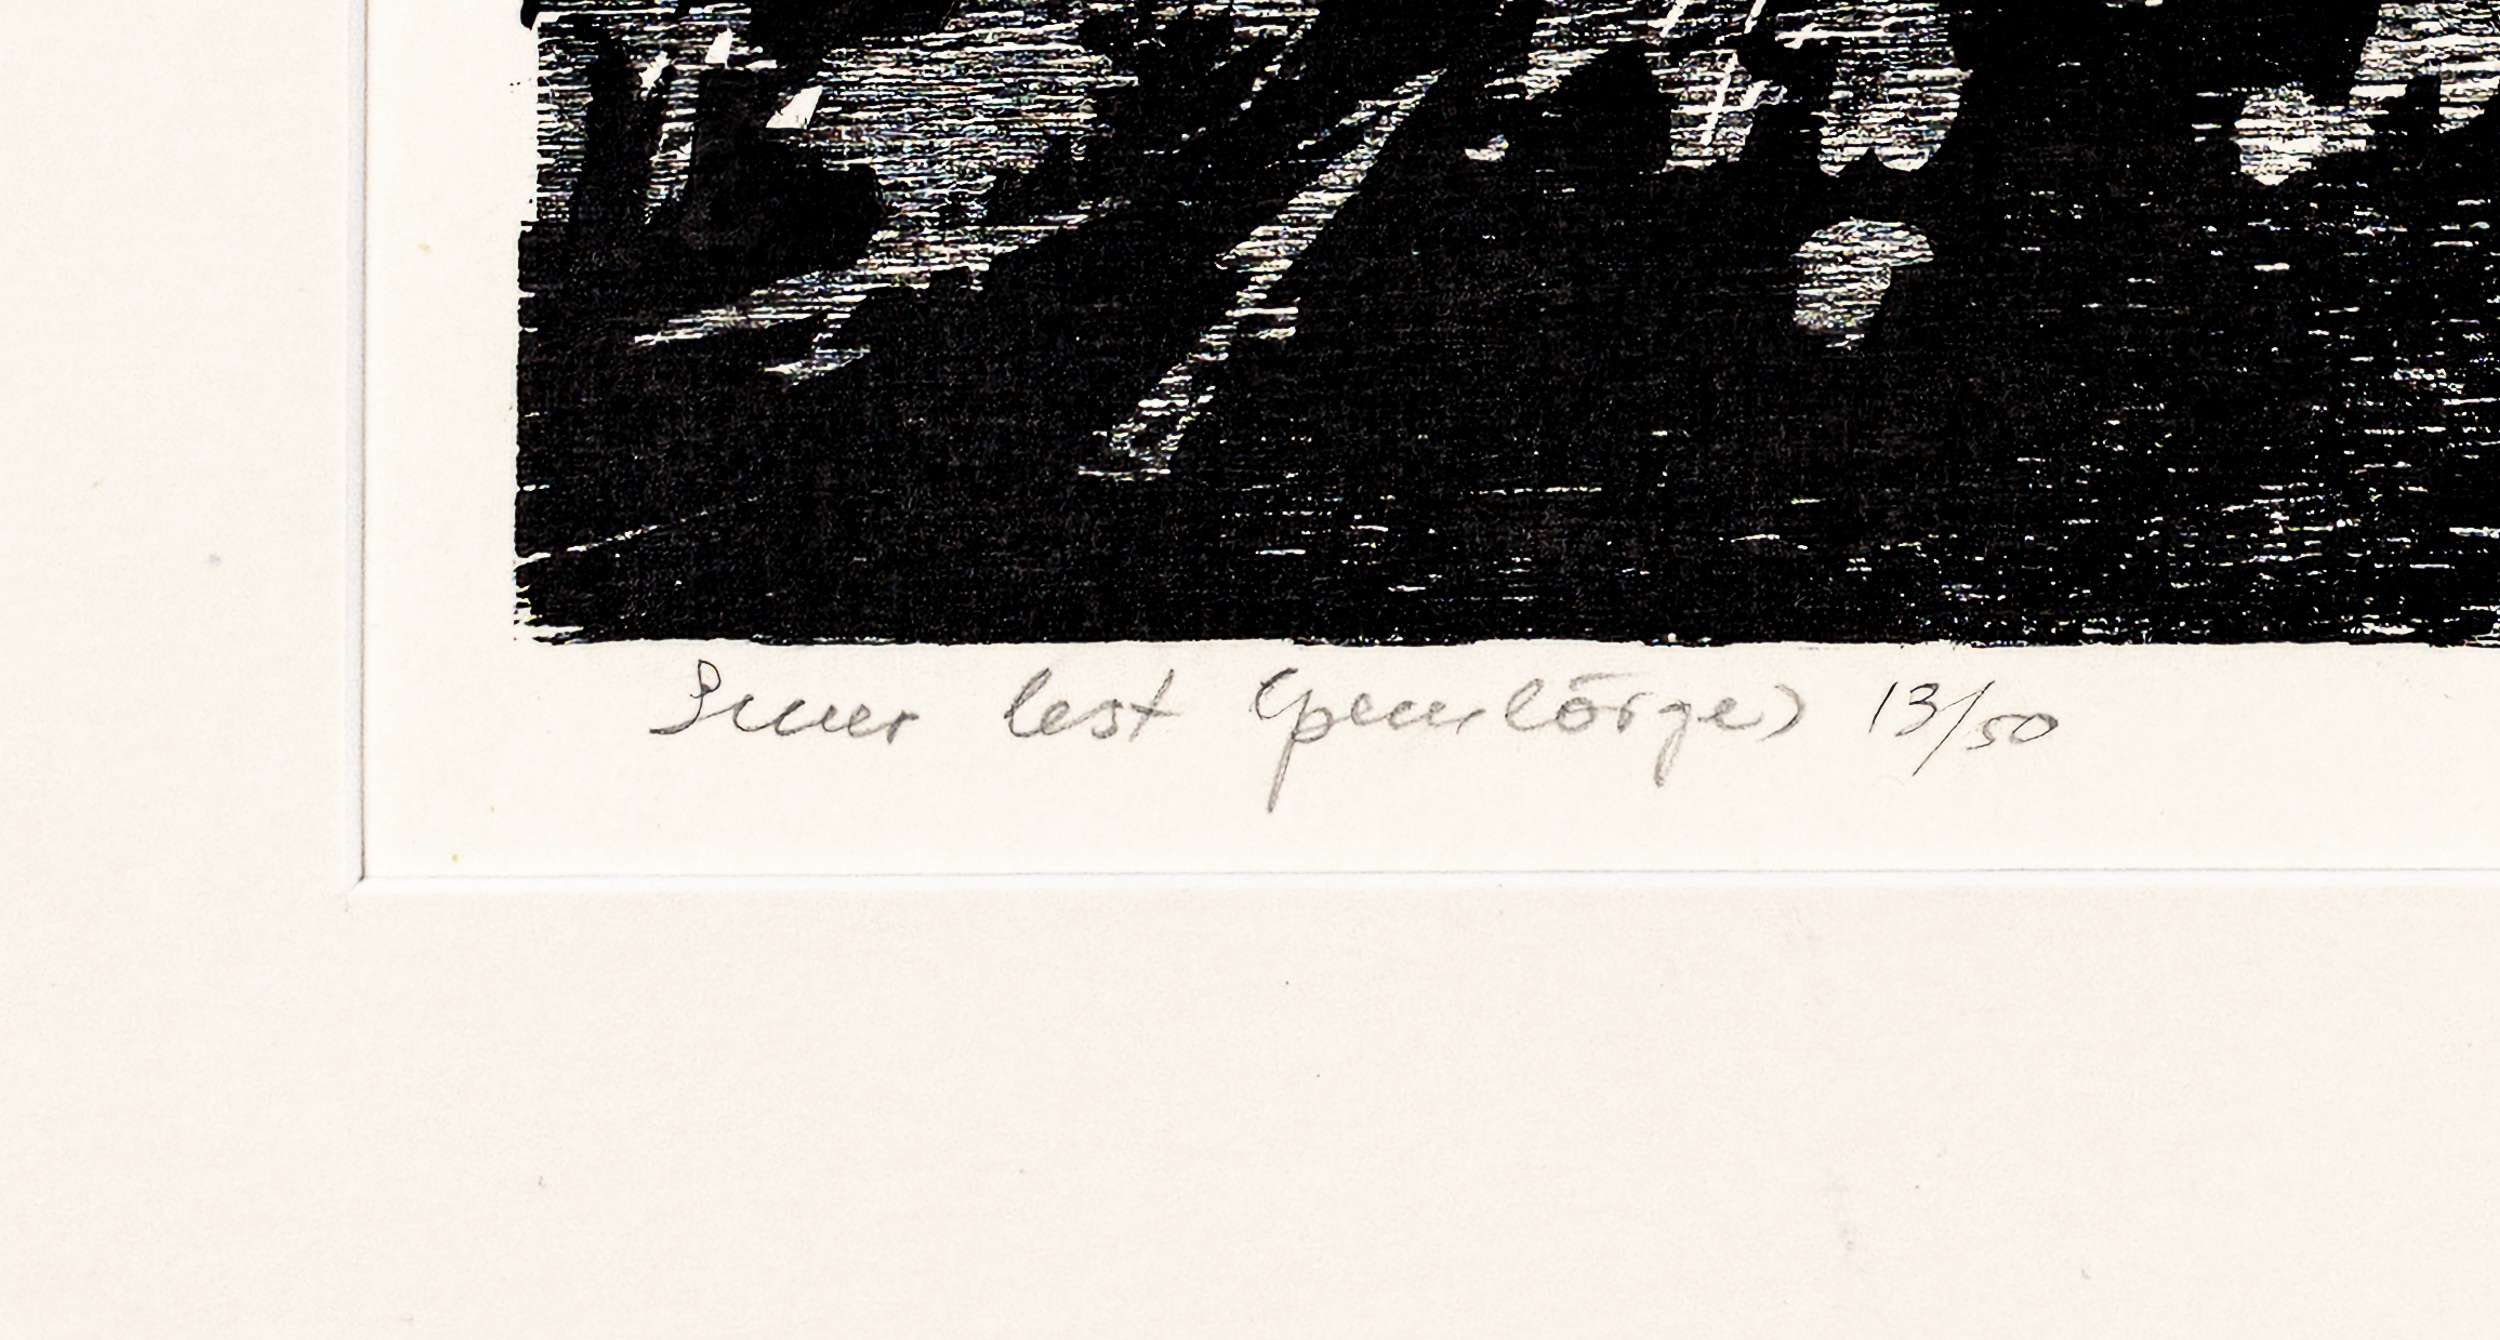 Suur lest (puulõige) 13/50